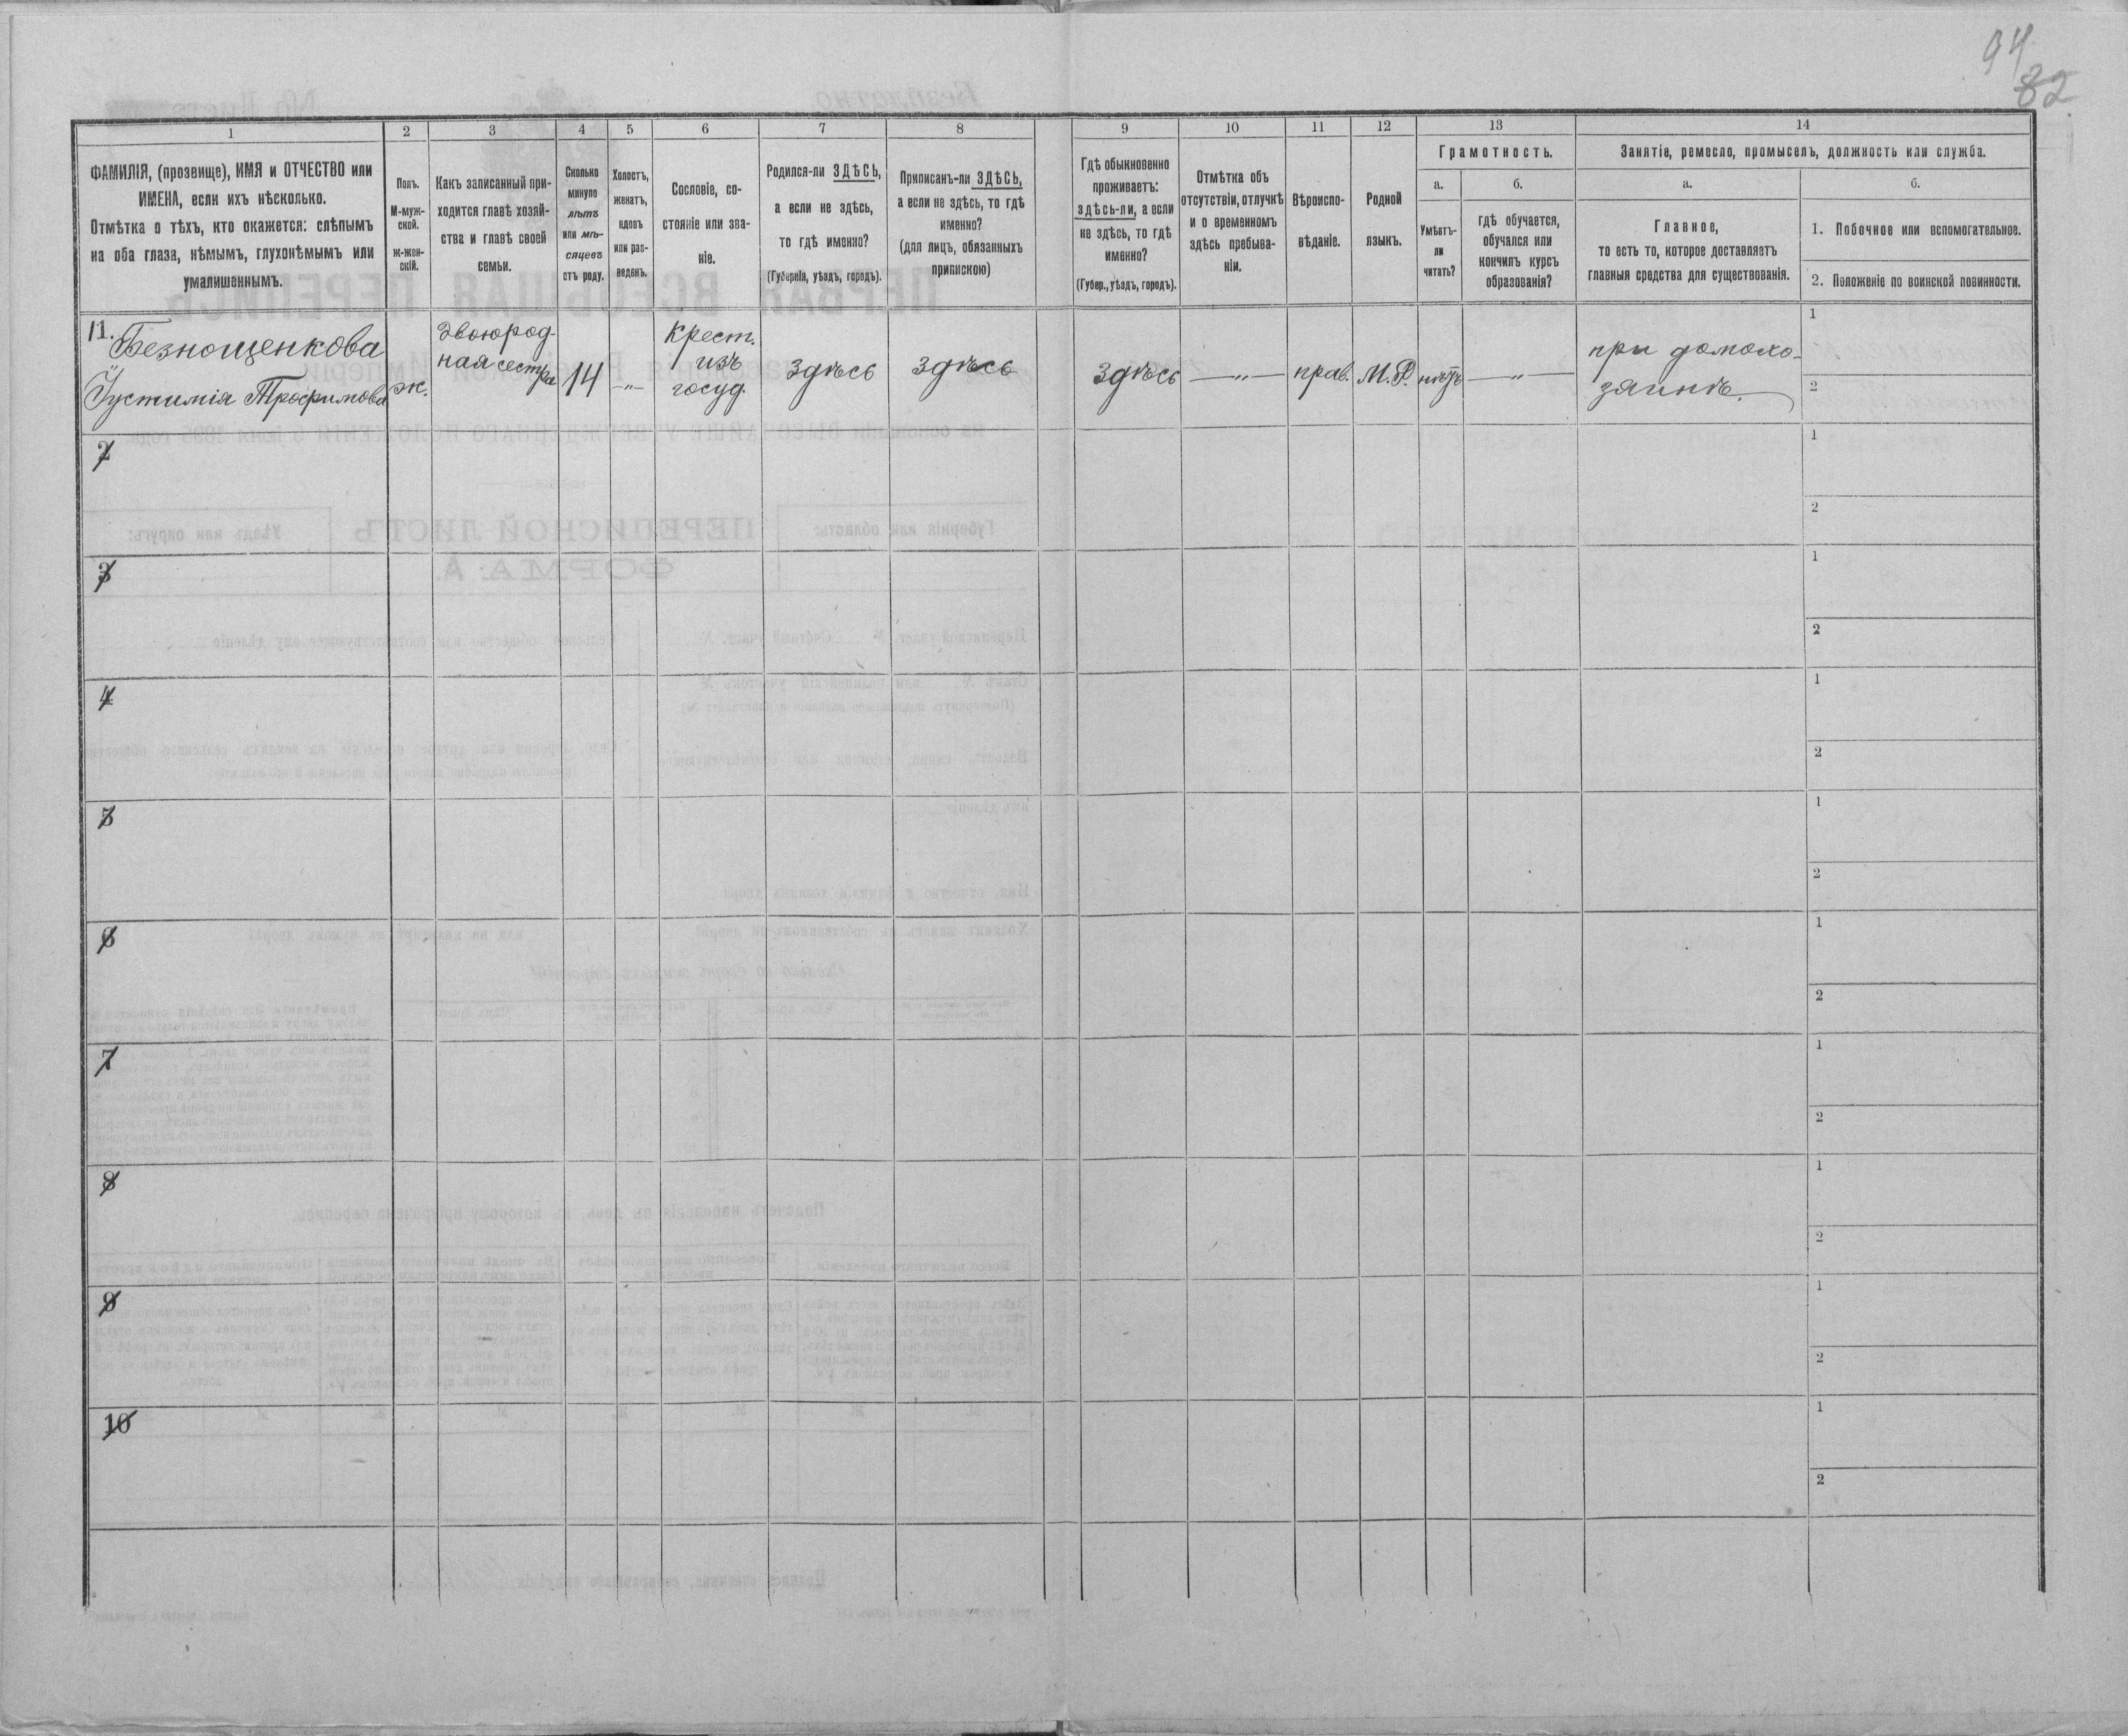 94
82
1
2
3
4
5
6
7
8
9
10
11
12
13
14
ФАМИЛІЯ, (прозвище), ИМЯ и ОТЧЕСТВО или
ИМЕНА, если ихъ нѣсколько.
Отмѣтка о тѣхъ, кто окажется: слѣпымъ
на оба глаза, нѣмымъ, глухонѣмымъ или
умалишеннымъ.
Полъ.
М-муж-
ской.
ж-жен-
скій.
Какъ записанный при-
ходится главѣ хозяй-
ства и главѣ своей
семьи.
Сколько
минуло
лѣтъ
или мѣ-
сяцевъ
отъ роду.
Холостъ,
женатъ,
вдовъ
или раз-
веденъ.
Сословіе, со-
стояніе или зва-
ніе.
Родился-ли ЗДѢСЬ,
а если не здѣсь,
то гдѣ именно?
(Губернія, уѣздъ, городъ).
Приписанъ-ли ЗДѢСЬ,
а если не здѣсь, то гдѣ
именно?
(для лицъ, обязанныхъ
припискою)
Гдѣ обыкновенно
проживаетъ:
здѣсь-ли, а если
не здѣсь, то гдѣ
именно?
(Губер., уѣздъ, городъ).
Отмѣтка объ
отсутствіи, отлучкѣ
и о временномъ
здѣсь пребыва-
ніи.
Вѣроиспо-
вѣданіе.
Родной
языкъ.
Грамотность.
а.
Умѣетъ-
ли
читать?
б.
гдѣ обучается,
обучался или
кончилъ курсъ
образованія?
Занятіе, ремесло, промыселъ, должность или служба.
а.
Главное,
то есть то, которое доставляетъ
главныя средства для существованія.
б.
1. Побочное или вспомогательное.
2. Положеніе по воинской повинности.
11.
Безнощенкова
Устимія Трофимова
ж.
двоюрод-
ная сестра
14
—"—
Крест.
изъ
госуд.
Здѣсь
Здѣсь
Здѣсь
—"—
прав.
М.Р.
нѣтъ
—"—
при домохо-
зяинѣ.
1
2
2
1
2
3
1
2
4
1
2
5
1
2
6
1
2
7
1
2
8
1
2
9
1
2
10
1
2